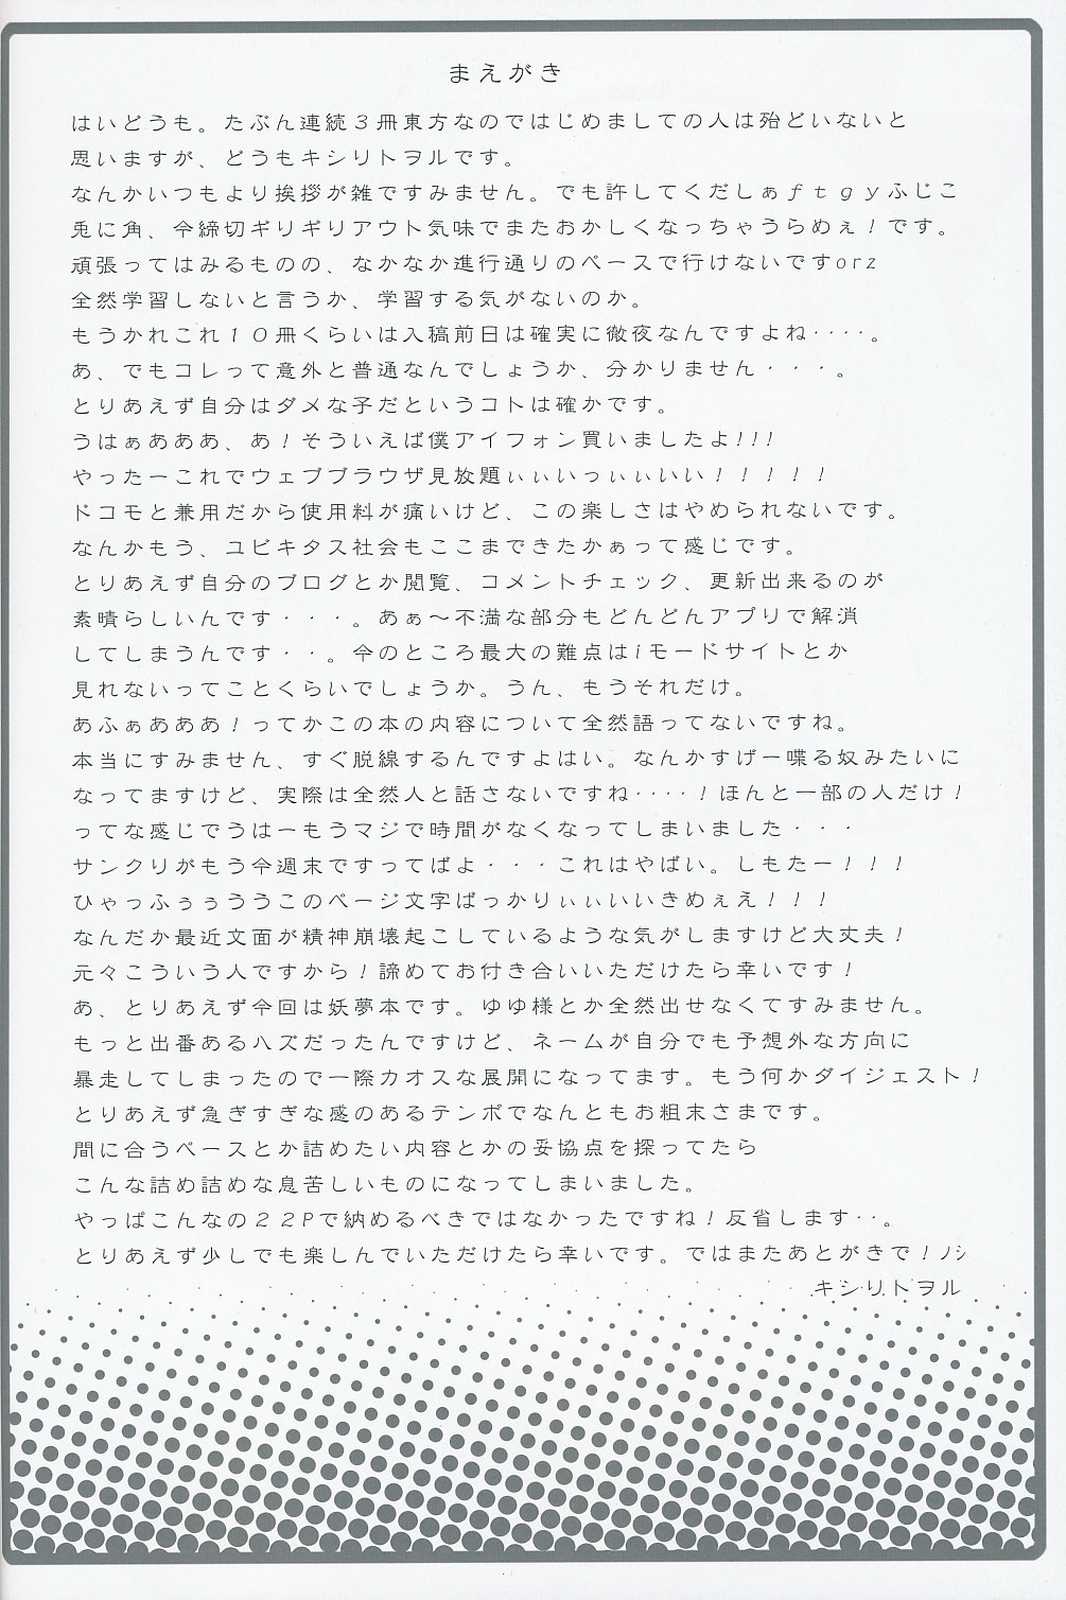 まえがき
はいどうも。たぶん連続3冊東方なのではじめましての人は殆どいないと
思いますが、どうもキシリトヲルです。
なんかいつもより挨拶が雑ですみません。でも許してくだしぁｆｔｇｙふじこ
兎に角、今締切ギリギリアウト気味でまたおかしくなっちゃうらめぇ！です。
頑張ってはみるものの、なかなか進行通りのペースで行けないですorz
全然学習しないと言うか、学習する気がないのか。
もうかれこれ１０冊くらいは入稿前日は確実に徹夜なんですよね‥‥。
あ、でもコレって意外と普通なんでしょうか、分かりません・・・。
とりあえず自分はダメな子だというコトは確かです。
うはぁあああ、あ！そういえば僕アイフォン買いましたよ!!!
やったーこれでウェブブラウザ見放題ぃぃいっぃぃいい！！！！！
ドコモと兼用だから使用料が痛いけど、この楽しさはやめられないです。
なんかもう、ユビキタス社会もここまできたかぁって感じです。
とりあえず自分のブログとか閲覧、コメントチェック、更新出来るのが
素晴らしいんです・・・。あぁ～不満な部分もどんどんアプリで解消
してしまうんです・・。今のところ最大の難点はiモードサイトとか
見れないってことくらいでしょうか。うん、もうそれだけ。
あふぁあああ！ってかこの本の内容について全然語ってないですね。
本当にすみません、すぐ脱線するんですよはい。なんかすげー喋る奴みたいに
なってますけど、実際は全然人と話さないですね‥‥！ほんと一部の人だけ！
ってな感じでうはーもうマジで時間がなくなってしまいました・・・
サンクリがもう今週末ですってばよ・・・これはやばい。しもたー！！！
ひゃっふぅぅううこのページ文字ばっかりぃぃいいきめぇえ！！！
なんだか最近文面が精神崩壊起こしているような気がしますけど大丈夫！
元々こういう人ですから！諦めてお付き合いいただけたら幸いです！
あ、とりあえず今回は妖夢本です。ゆゆ様とか全然出せなくてすみません。
もっと出番あるハズだったんですけど、ネームが自分でも予想外な方向に
暴走してしまったので一際カオスな展開になってます。もう何かダイジェスト！
とりあえず急ぎすぎな感のあるテンポでなんともお粗末さまです。
間に合うペースとか詰めたい内容とかの妥協点を探ってたら
こんな詰め詰めな息苦しいものになってしまいました。
やっぱこんなの２２Pで納めるべきではなかったですね！反省します‥。
とりあえず少しでも楽しんでいただけたら幸いです。ではまたあとがきで！ﾉｼ
キシリトヲル